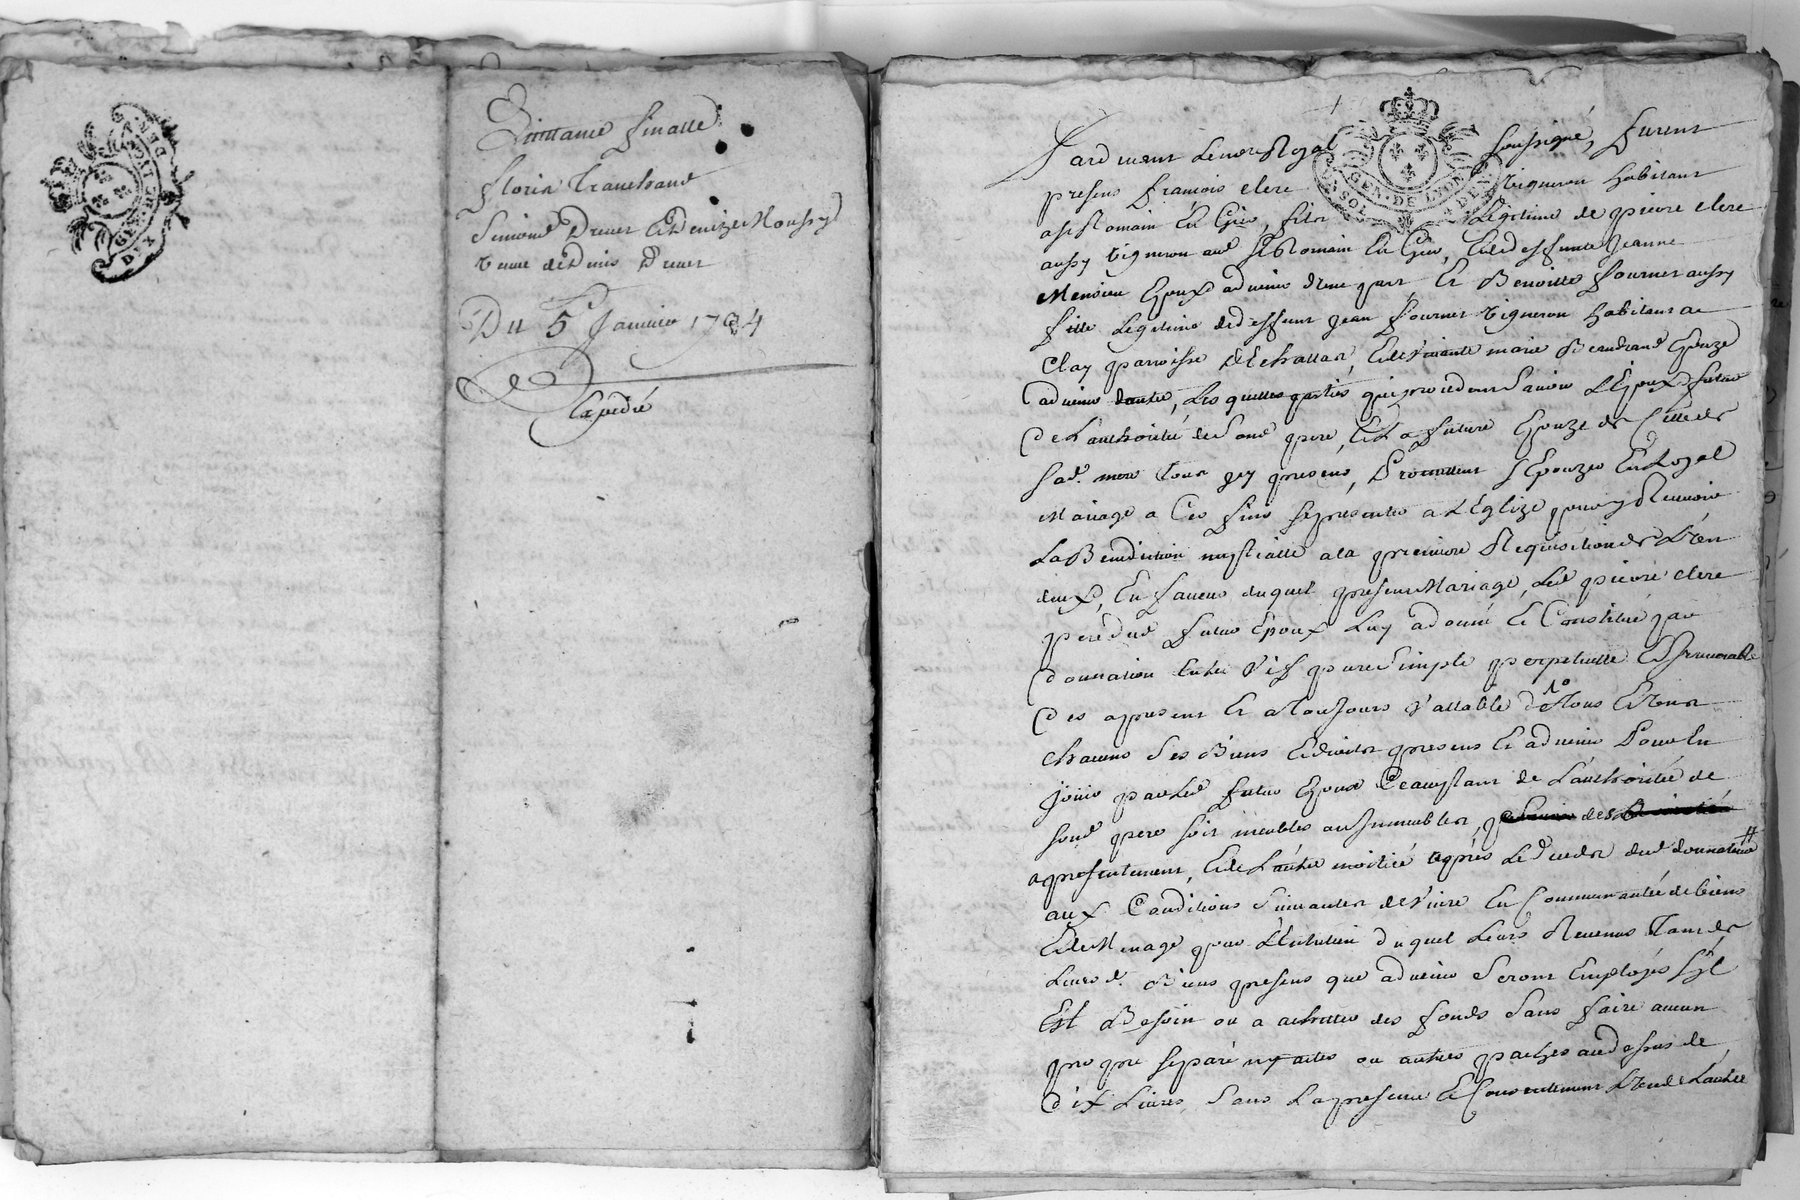 GEN. DE LYON
DEN
Quittance finalle
Florin Tranchand
Simond Drevet Et Denize Moussy
veuve de Denis Drevet
Du 5e Janvier 1734
Expedié
GEN. DE LYON
UN SOL
4 DEN
Pardevant Le no.re Royal soussigné, furent
presens francois clerc vigneron habitant
a st Romain En Gier, fils Legitime de pierre clerc
aussy vigneron aud. St Romain En Gier, Et de deffunte Jeanne
Epoux advenir d'une part Et Benoitte fournet aussy
fille Legitime de deffunt Jean fournet vigneron habitant a
Clay parroisse dEchallas, Et de vivante marie Epouze
advenir dautre, Les quelles parties qui procedent scavoir LEpoux futur
de Lauthorité de sond. pere, Et La future Epouze de Celle de
sad. mere Tous icy presens, Promettent sEpouzer En Loyal
Mariage a Ces fins se presenter a LEglize pour y Recevoir
La Benediction nuptialle a la premiere Requisition de Lun
deux, En faveur duquel present Mariage, Led. pierre clerc
pere dud. futur Epoux Luy a donné Et Constitué par
donnation Entre vifs pure Simple perpetuelle Et Irrevocable
Des apresent Et a Toujours vallable de Tous Et Uns
chacuns Ses Biens Et droits presens Et advenir Pour En
jouir par Led. futur Epoux de Lauthorité de
sond. pere soit meubles ou Immeubles, des
apresentement, Et de Lautre moitié apres Le deceds dud. donnateur #
aux Conditions Suivantes de vivre En Communauté de biens
Et de Menage pour LEntretien duquel Leurs Revenus Tant de
Leursd. Biens presens que advenir Seront Employés s'il
Est Besoin ou a achetter des fonds Sans faire aucun
propre separé ny actes ou autres pactes au dessus de
dix Livres, Sans La presence Et Consentement Lun de Lautre